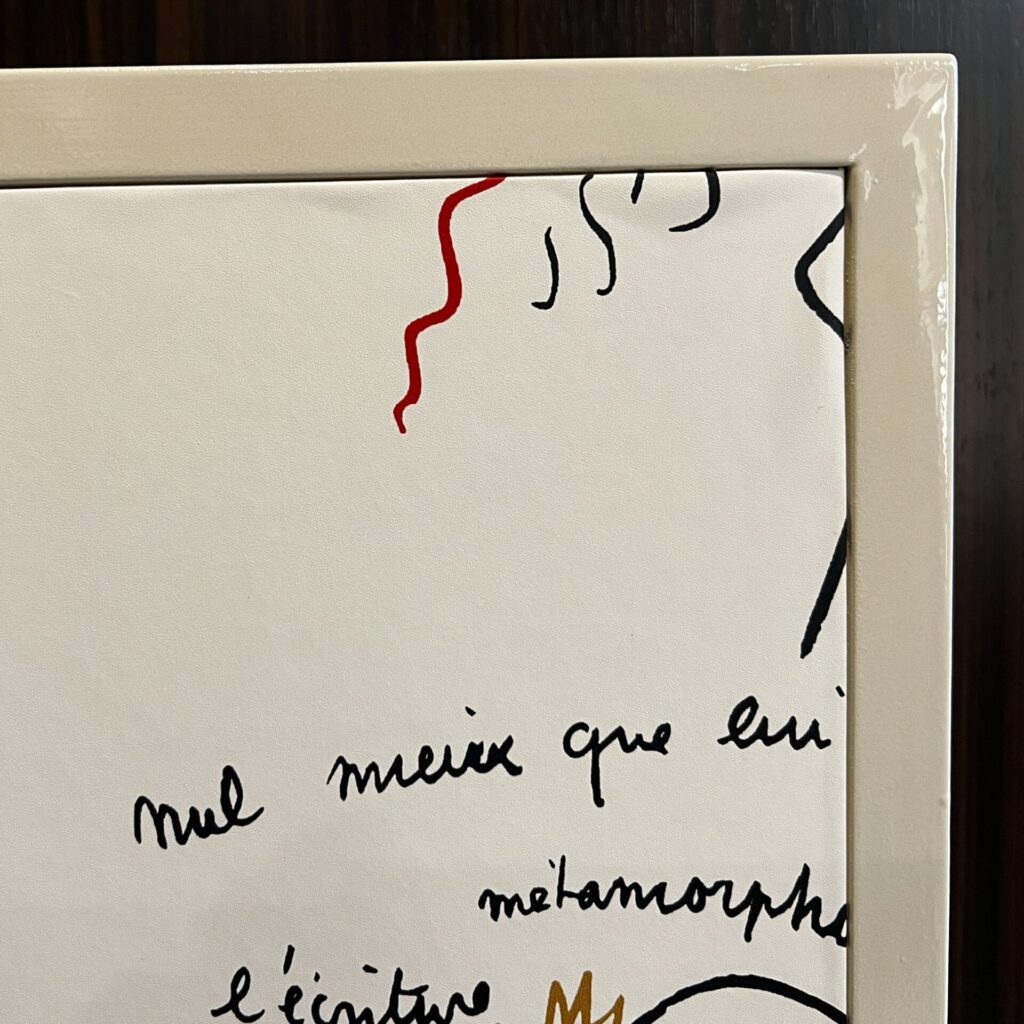 nul mieux que lui
métamorpho
l'écriture